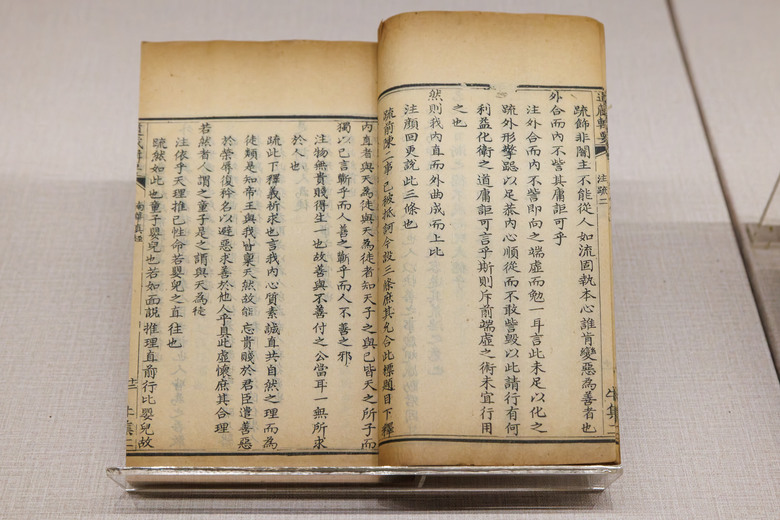 道藏輯要 注疏二 牛集二
疏飾非闇主不能從人如流固執本心誰肯變惡為善者也
外合而內不訾其庸詎可乎
注外合而內不訾即向之端虛而勉一耳言此未足以化之
疏外形擎跽以足恭內心順從而不敢訾毀以此請行有何
利益化衛之道庸詎可言乎斯則斥前端虛之術未宜行用
之也
然則我內直而外曲成而上比
注顏回更說此三條也
疏前陳二事已被抵訶今設三條庶其允合此標題目下釋
內直者與天為徒與天為徒者知天子之與己皆天之所子而
獨以己言蘄乎而人善之蘄乎而人不善之邪
注物無貴賤得生一也故善與不善付之公當耳一無所求
於人也
疏此下釋義祈求也言我內心質素誠直共自然之理而為
徒類是知帝王與我皆稟天然故能忘貴賤於君臣遺善惡
於榮辱復矜名以避惡求善於他人乎具此虛懷庶其合理
若然者人謂之童子是之謂與天為徒
注依乎天理推己性命若嬰兒之直往也
疏然如此也童子嬰兒也若如向說推理直前行比嬰兒故
南華真經 十二 牛集二